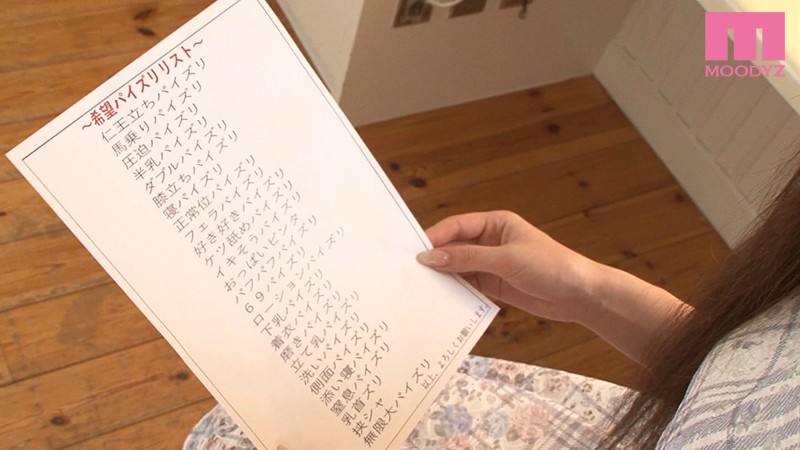 MOODYZ
～希望パイズリリスト～
仁王立ちパイズリ
馬乗りパイズリ
圧迫パイズリ
半乳パイズリ
ダブルパイズリ
膝立ちパイズリ
寝パイズリ
正常位パイズリ
フェラパイズリ
好き好きパイズリ
ケツ舐めパイズリ
イキそうパイズリ
おっぱいビンタ
パフパフパイズリ
６９パイズリ
ローションパイズリ
下乳パイズリ
着衣パイズリ
磨きパイズリ
立て乳パイズリ
洗いパイズリ
側面パイズリ
添い寝パイズリ
窒息パイズリ
乳首ズリ
挟シャ
無限大パイズリ
以上 よろしくお願いします